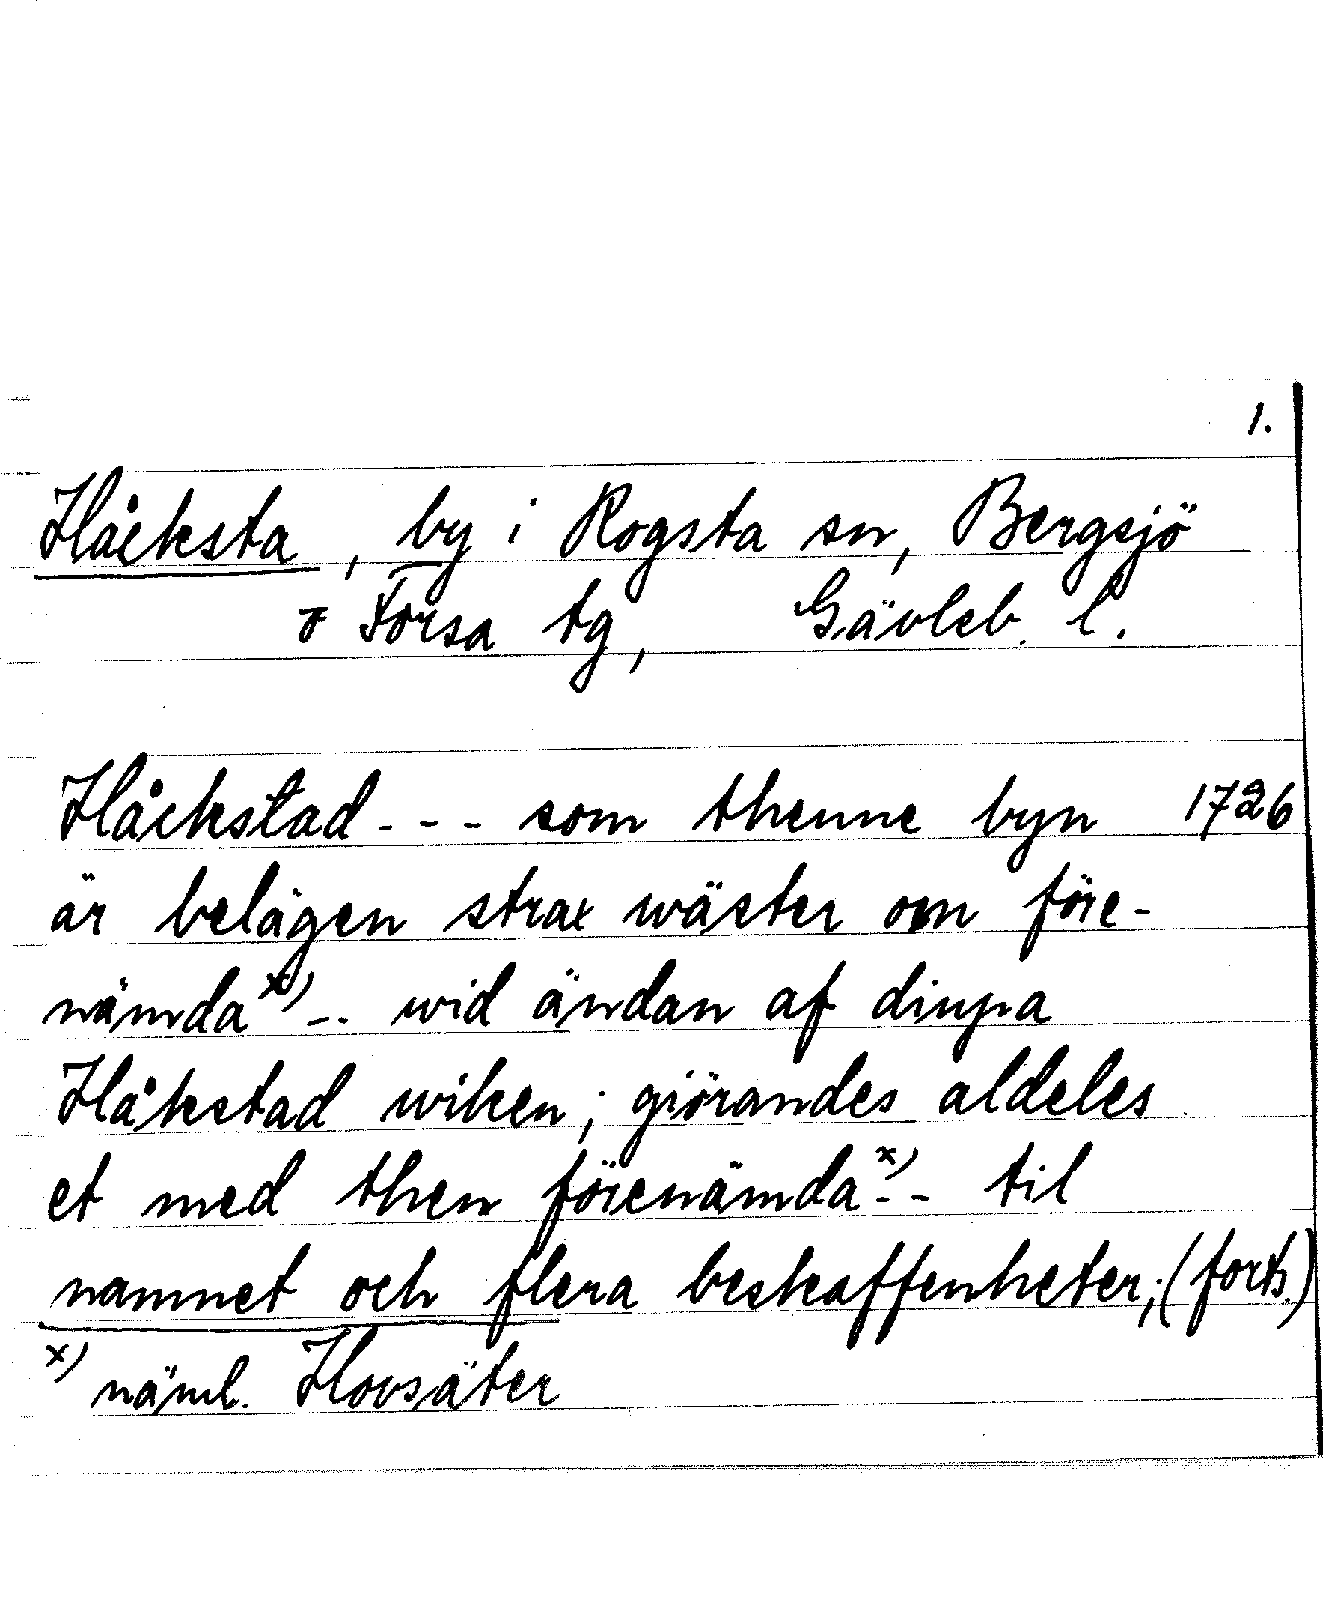 1.
Håcksta, by i Rogsta sn, Bergsjö
o Forsa tg, Gävleb. l.
Håckstad - - - som thenne byn 1726
är belägen strax wäster om före-
nämda x) - - wid ändan af diupa
Håkstad wiken; giörandes aldeles
et med then förenämda x) - - til
namnet och flera beskaffenheter; (forts.)
x) näml. Hovsäter